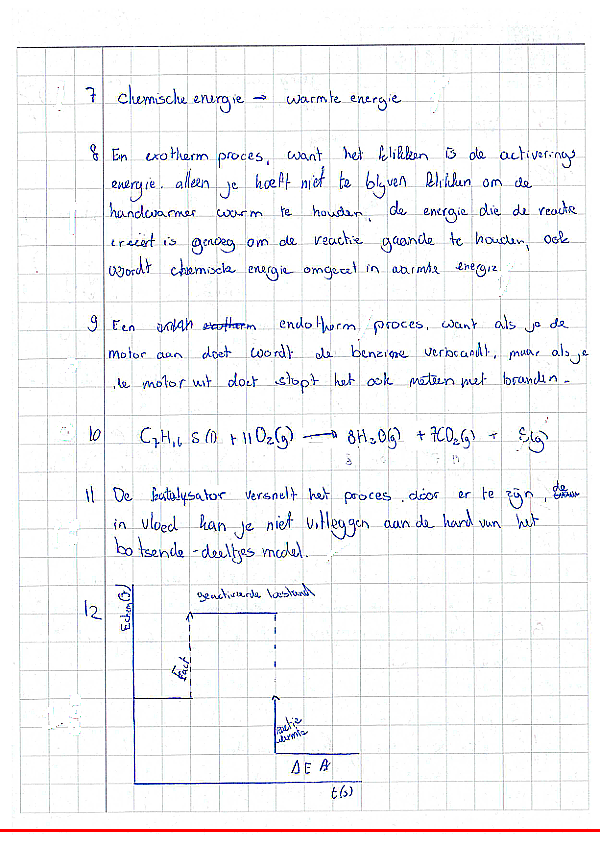 7 chemische energie → warmte energie
8 En exotherm proces, want het klikken is de activerings
energie. alleen je hoeft niet te blyven klikken om de
handwarmer warm te houden, de energie die de reactie
creëert is genoeg om de reactie gaande te houden, ook
wordt chemische energie omgezet in warmte energie
9 Een exotherm endotherm proces, want als je de
motor aan doet wordt de benzine verbrandt, maar als je
de motor uit doet stopt het ook meteen met branden.
10 C7H16 S (l) + 11O2(g) → 8H2O(g) + 7CO2(g) + S(g)
11 De katalysator versnelt het proces door er te zijn, de
in vloed kan je niet uitleggen aan de hand van het
botsende-deeltjes model.
12 Echem(J)
geactiveerde toestand
Eact
reactie
warmte
ΔE
t(s)